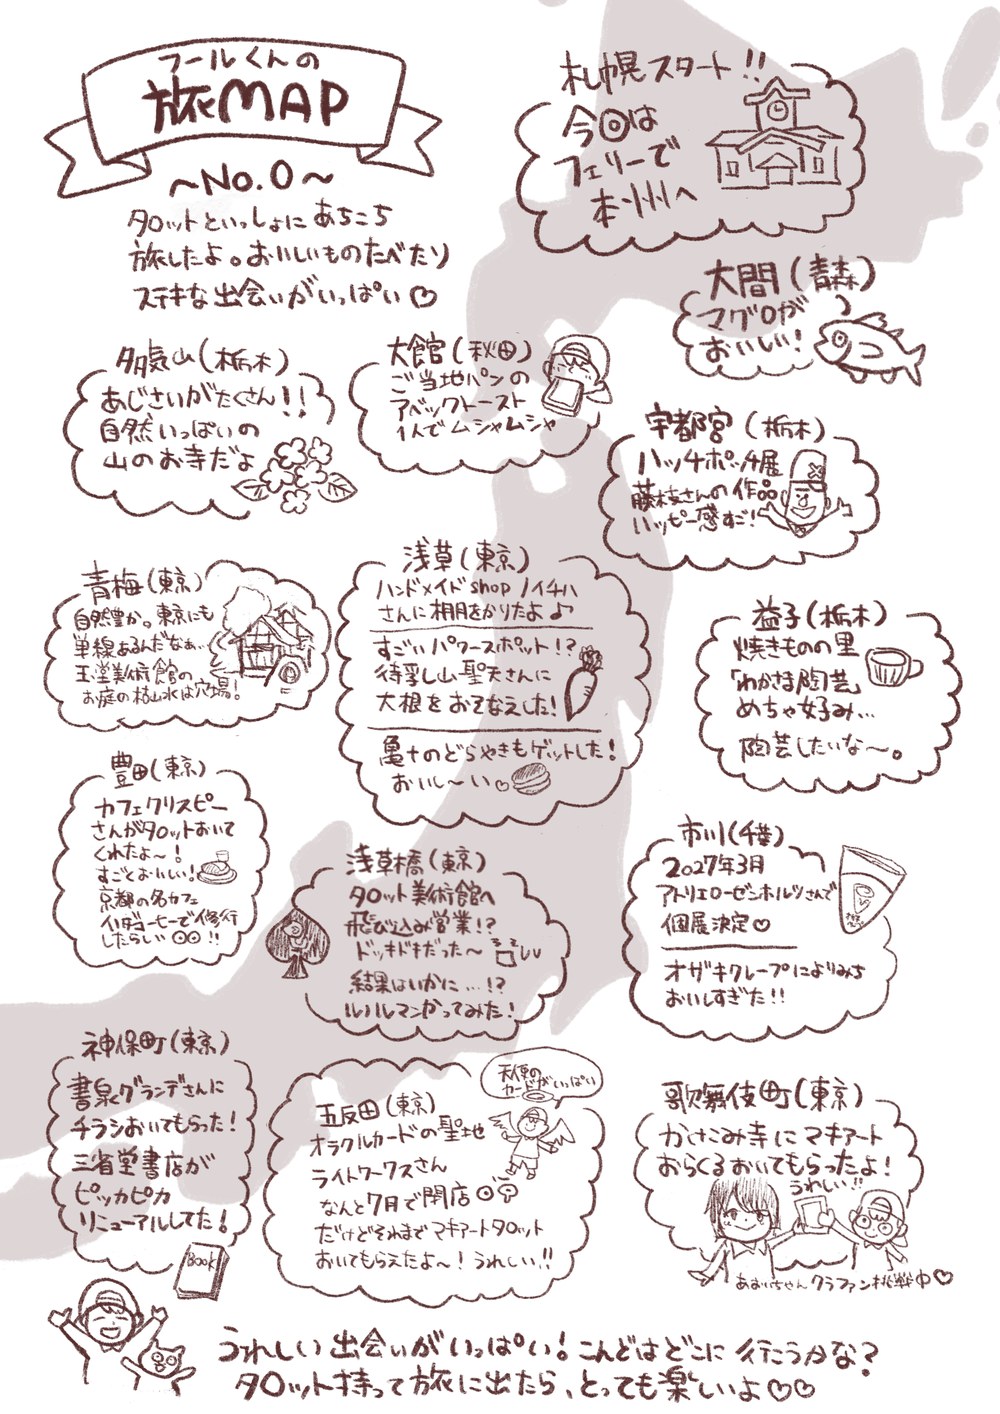 フールくんの
旅MAP
～No.0～
タロットといっしょに あちこち
旅したよ。おいしいものたべたり
ステキな出会いがいっぱい♡
札幌スタート!!
今回は
フェリーで
本州へ
大間(青森)
マグロが
おいしい!
多気山(栃木)
あじさいがたくさん!!
自然いっぱいの
山のお寺だよ
大館(秋田)
ご当地パンの
アベックトースト
1人でムシャムシャ
宇都宮(栃木)
ハッチポッチ展
藤枝さんの作品
ハッピー感すご!
青梅(東京)
自然豊か。東京にも
単線あるんだなぁ…
玉堂美術館の
お庭の枯山水は穴場!
浅草(東京)
ハンドメイドshop ノイチハ
さんに棚をかりたよ♪
すごいパワースポット!?
待乳山聖天さんに
大根をおそなえした!
亀十のどらやきもゲットした!
おいし～い♡
益子(栃木)
焼きものの里
「わかさま陶芸」
めちゃ好み…
陶芸したいな～。
豊田(東京)
カフェクリスピー
さんがタロットおいて
くれたよ～!
すごくおいしい!
京都の名カフェ
イノダコーヒーで修行
したらしい⊙⊙!!
浅草橋(東京)
タロット美術館へ
飛び込み営業!?
ドッキドキだった～
結果はいかに…!?
ルノルマンかってみた!
市川(千葉)
2027年3月
アトリエローゼンホルツさんで
個展決定♡
オザキクレープによりみち
おいしすぎた!!
神保町(東京)
書泉グランデさんに
チラシおいてもらった!
三省堂書店が
ピッカピカ
リニューアルしてた!
Book
天使の
カードがいっぱい
五反田(東京)
オラクルカードの聖地
ライトワークスさん
なんと7月で閉店
だけどそれまでマキアートタロット
おいてもらえたよ～!うれしい!!
歌舞伎町(東京)
かけこみ寺にマキアート
おらくるおいてもらったよ!
うれしい!!
あおいちゃんクラファン挑戦中♡
うれしい出会いがいっぱい!こんどはどこに行こうかな?
タロット持って旅に出たら、とっても楽しいよ♡♡